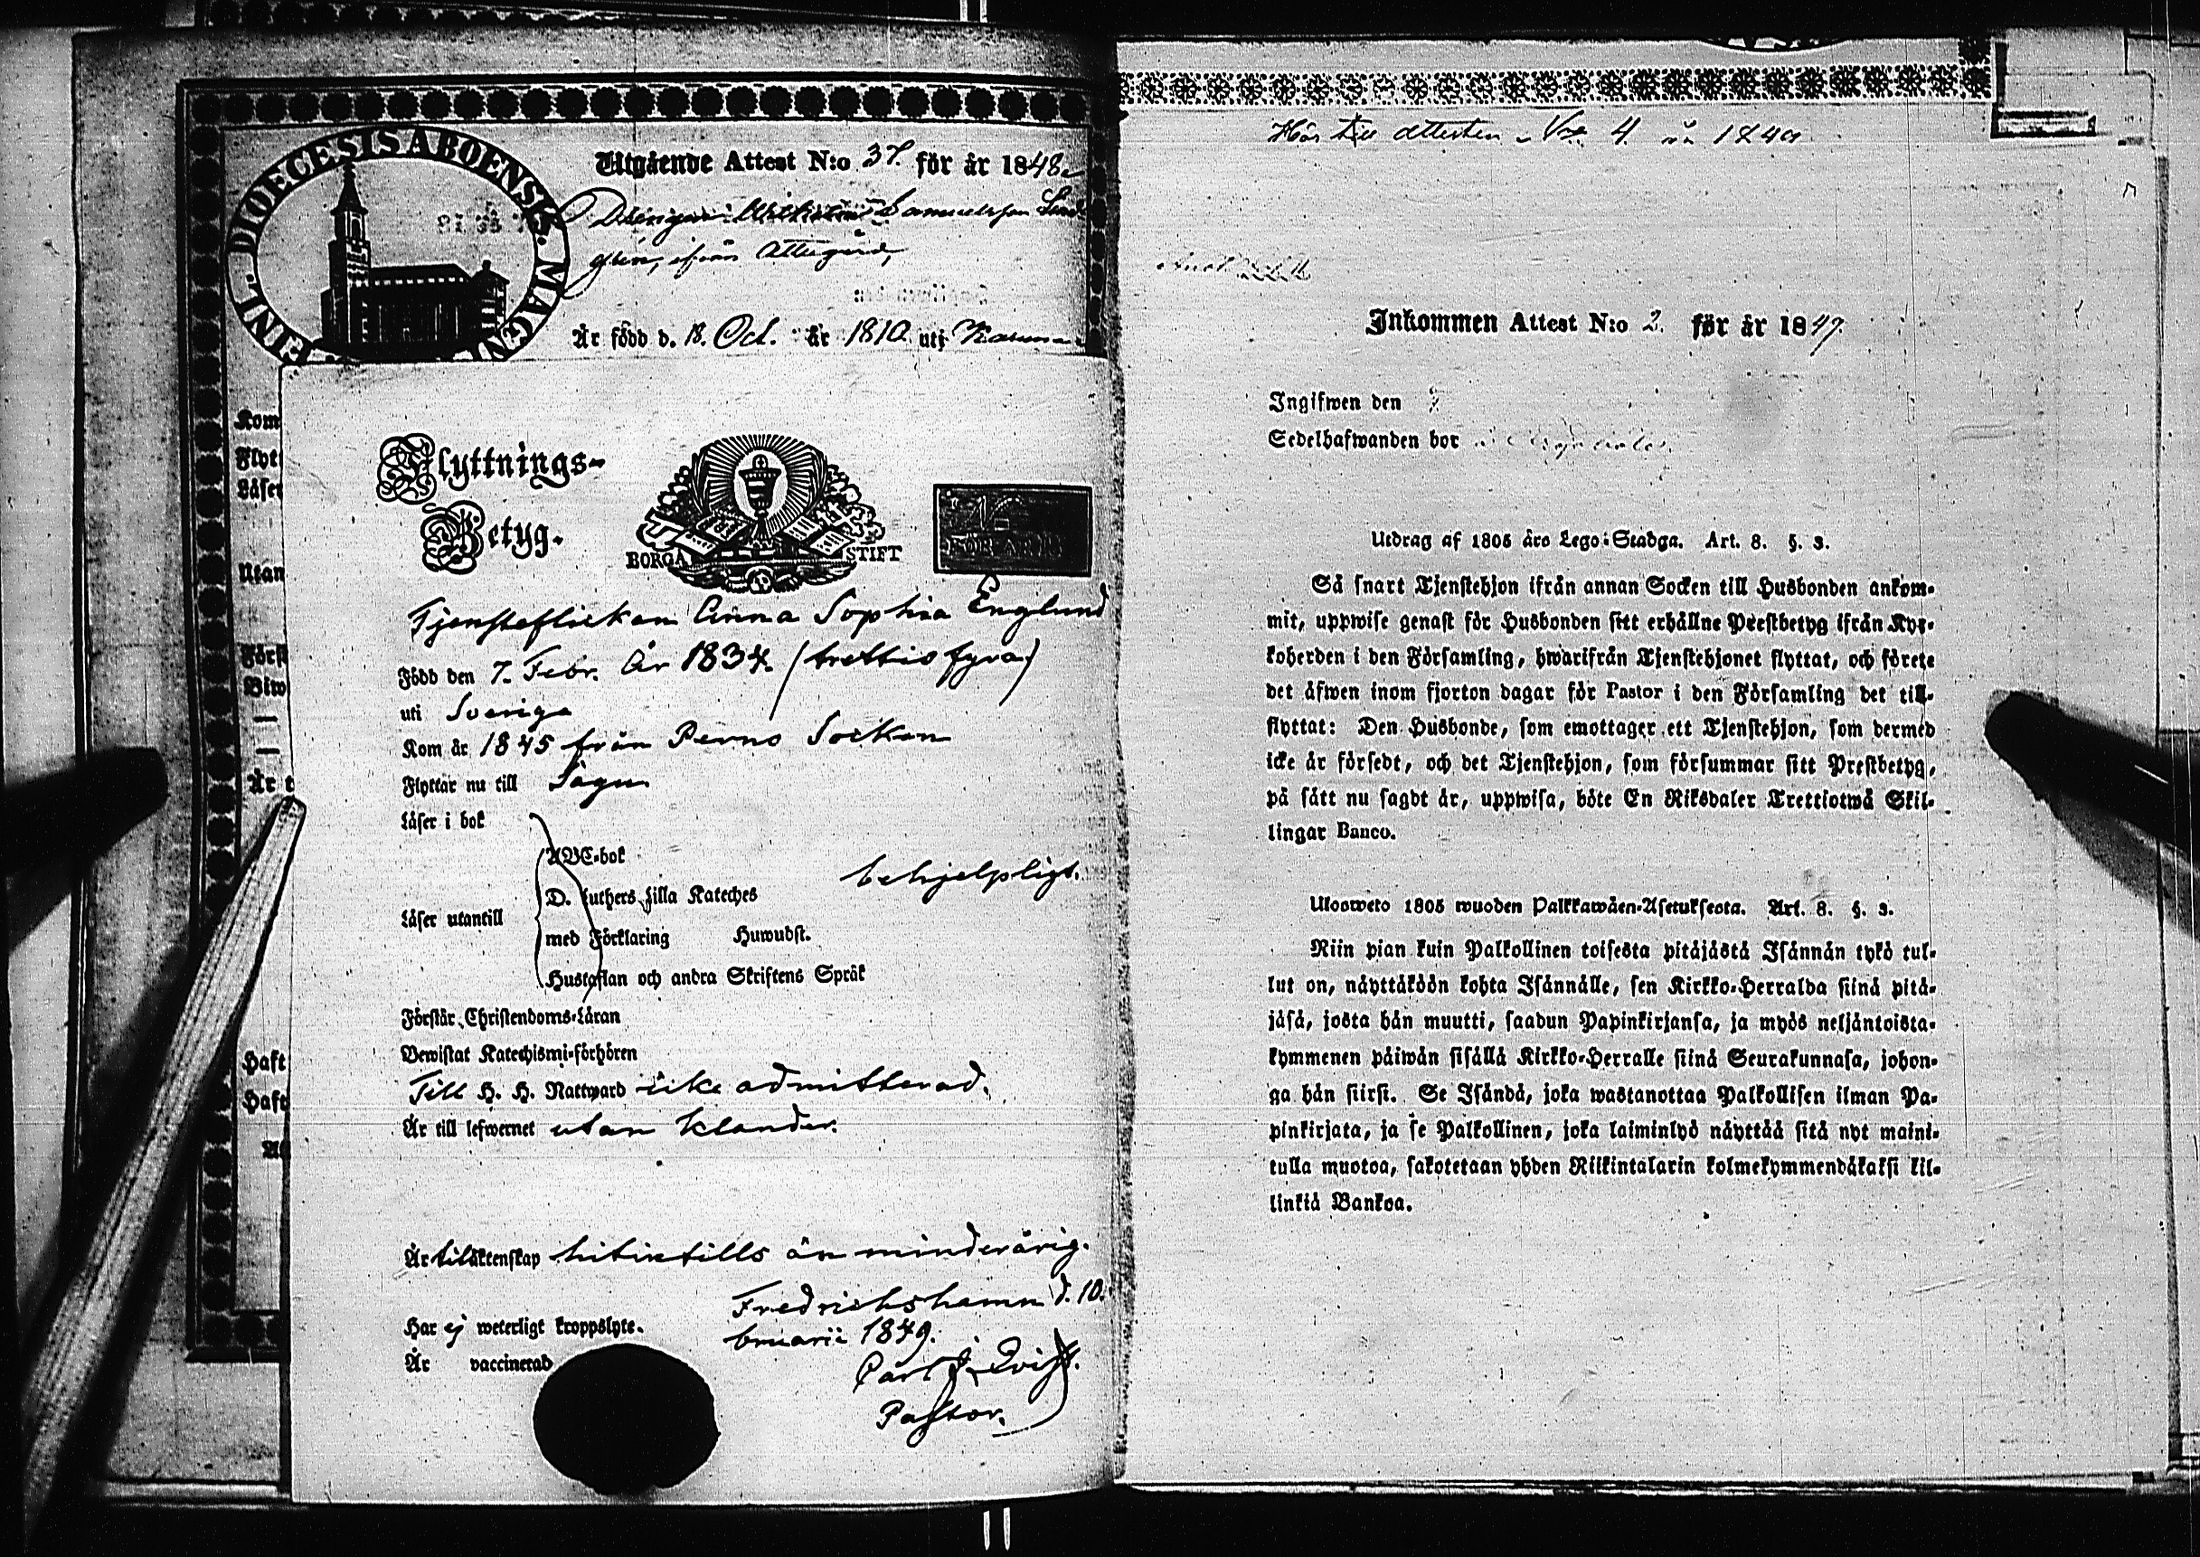 DIOECESIS ABOENSIS. MAGNI. FINL.
Utgående Attest N:o 37. för år 1848
Drängen Wilhelm Samuelsson Lind
gren, ifrån Attugård,
Är född d. 18. Oct. år 1810. uti
Kom
Flyt
Läser
Utan
Förs
Biw
—
—
Är t
Haft
Haft
Flyttnings-
Betyg.
BORGÅ STIFT
Tjensteflickan Anna Sophia Englund
Född den 7. Febr. År 1834. (trettio fyra)
uti Sverige
Kom år 1845 från Perno Socken
Flyttar nu till Sagu
Läser i bok
ABC-bok
behjelpligt.
D. Luthers Lilla Kateches
Läser utantill
med Förklaring Huwudst.
Hustaflan och andra Skriftens Språk
Förstår Christendoms-Läran
Bewistat Katechismi-förhören
Till H. H. Nattward icke admitterad.
Är till lefwernet utan klander.
Är til äktenskap hitintills än minderårig.
Fredrichshamn d. 10.
Har ej weterligt kroppslyte.
bruarii 1849.
Är vaccinerad
Carl J. Qvist.
Pastor.
Hör till attesten No 4 1849
Inkommen Attest N:o 2. för år 1849
Ingifwen den
Sedelhafwanden bor
Utdrag af 1805 års Lego-Stadga. Art. 8. §. 3.
Så snart Tjenstehjon ifrån annan Socken till Husbonden ankom-
mit, uppwise genast för Husbonden sitt erhållne Prestbetyg ifrån Kyr-
koherden i den Församling, hwarifrån Tjenstehjonet flyttat, och förete
det äfwen inom fjorton dagar för Pastor i den Församling det till-
flyttat: Den Husbonde, som emottager ett Tjenstehjon, som dermed
icke är försedt, och det Tjenstehjon, som försummar sitt Prestbetyg,
på sätt nu sagdt är, uppwisa, böte En Riksdaler Trettiotwå Skil-
lingar Banco.
Ulosweto 1805 wuoden Palkkawäen-Asetuksesta. Art. 8. §. 3.
Niin pian kuin Palkollinen toisesta pitäjästä Isännän tykö tul-
lut on, näyttäköön kohta Isännälle, sen Kirkko-Herralda siinä pitä-
jäsä, josta hän muutti, saadun Papinkirjansa, ja myös neljäntoista-
kymmenen päiwän sisällä Kirkko-Herralle siinä Seurakunnasa, johon-
ga hän siirsi. Se Isändä, joka wastanottaa Palkollisen ilman Pa-
pinkirjata, ja se Palkollinen, joka laiminlyö näyttää sitä nyt maini-
tulla muotoa, sakotetaan yhden Riikintalarin kolmekymmendäkaksi kil-
linkiä Bankoa.